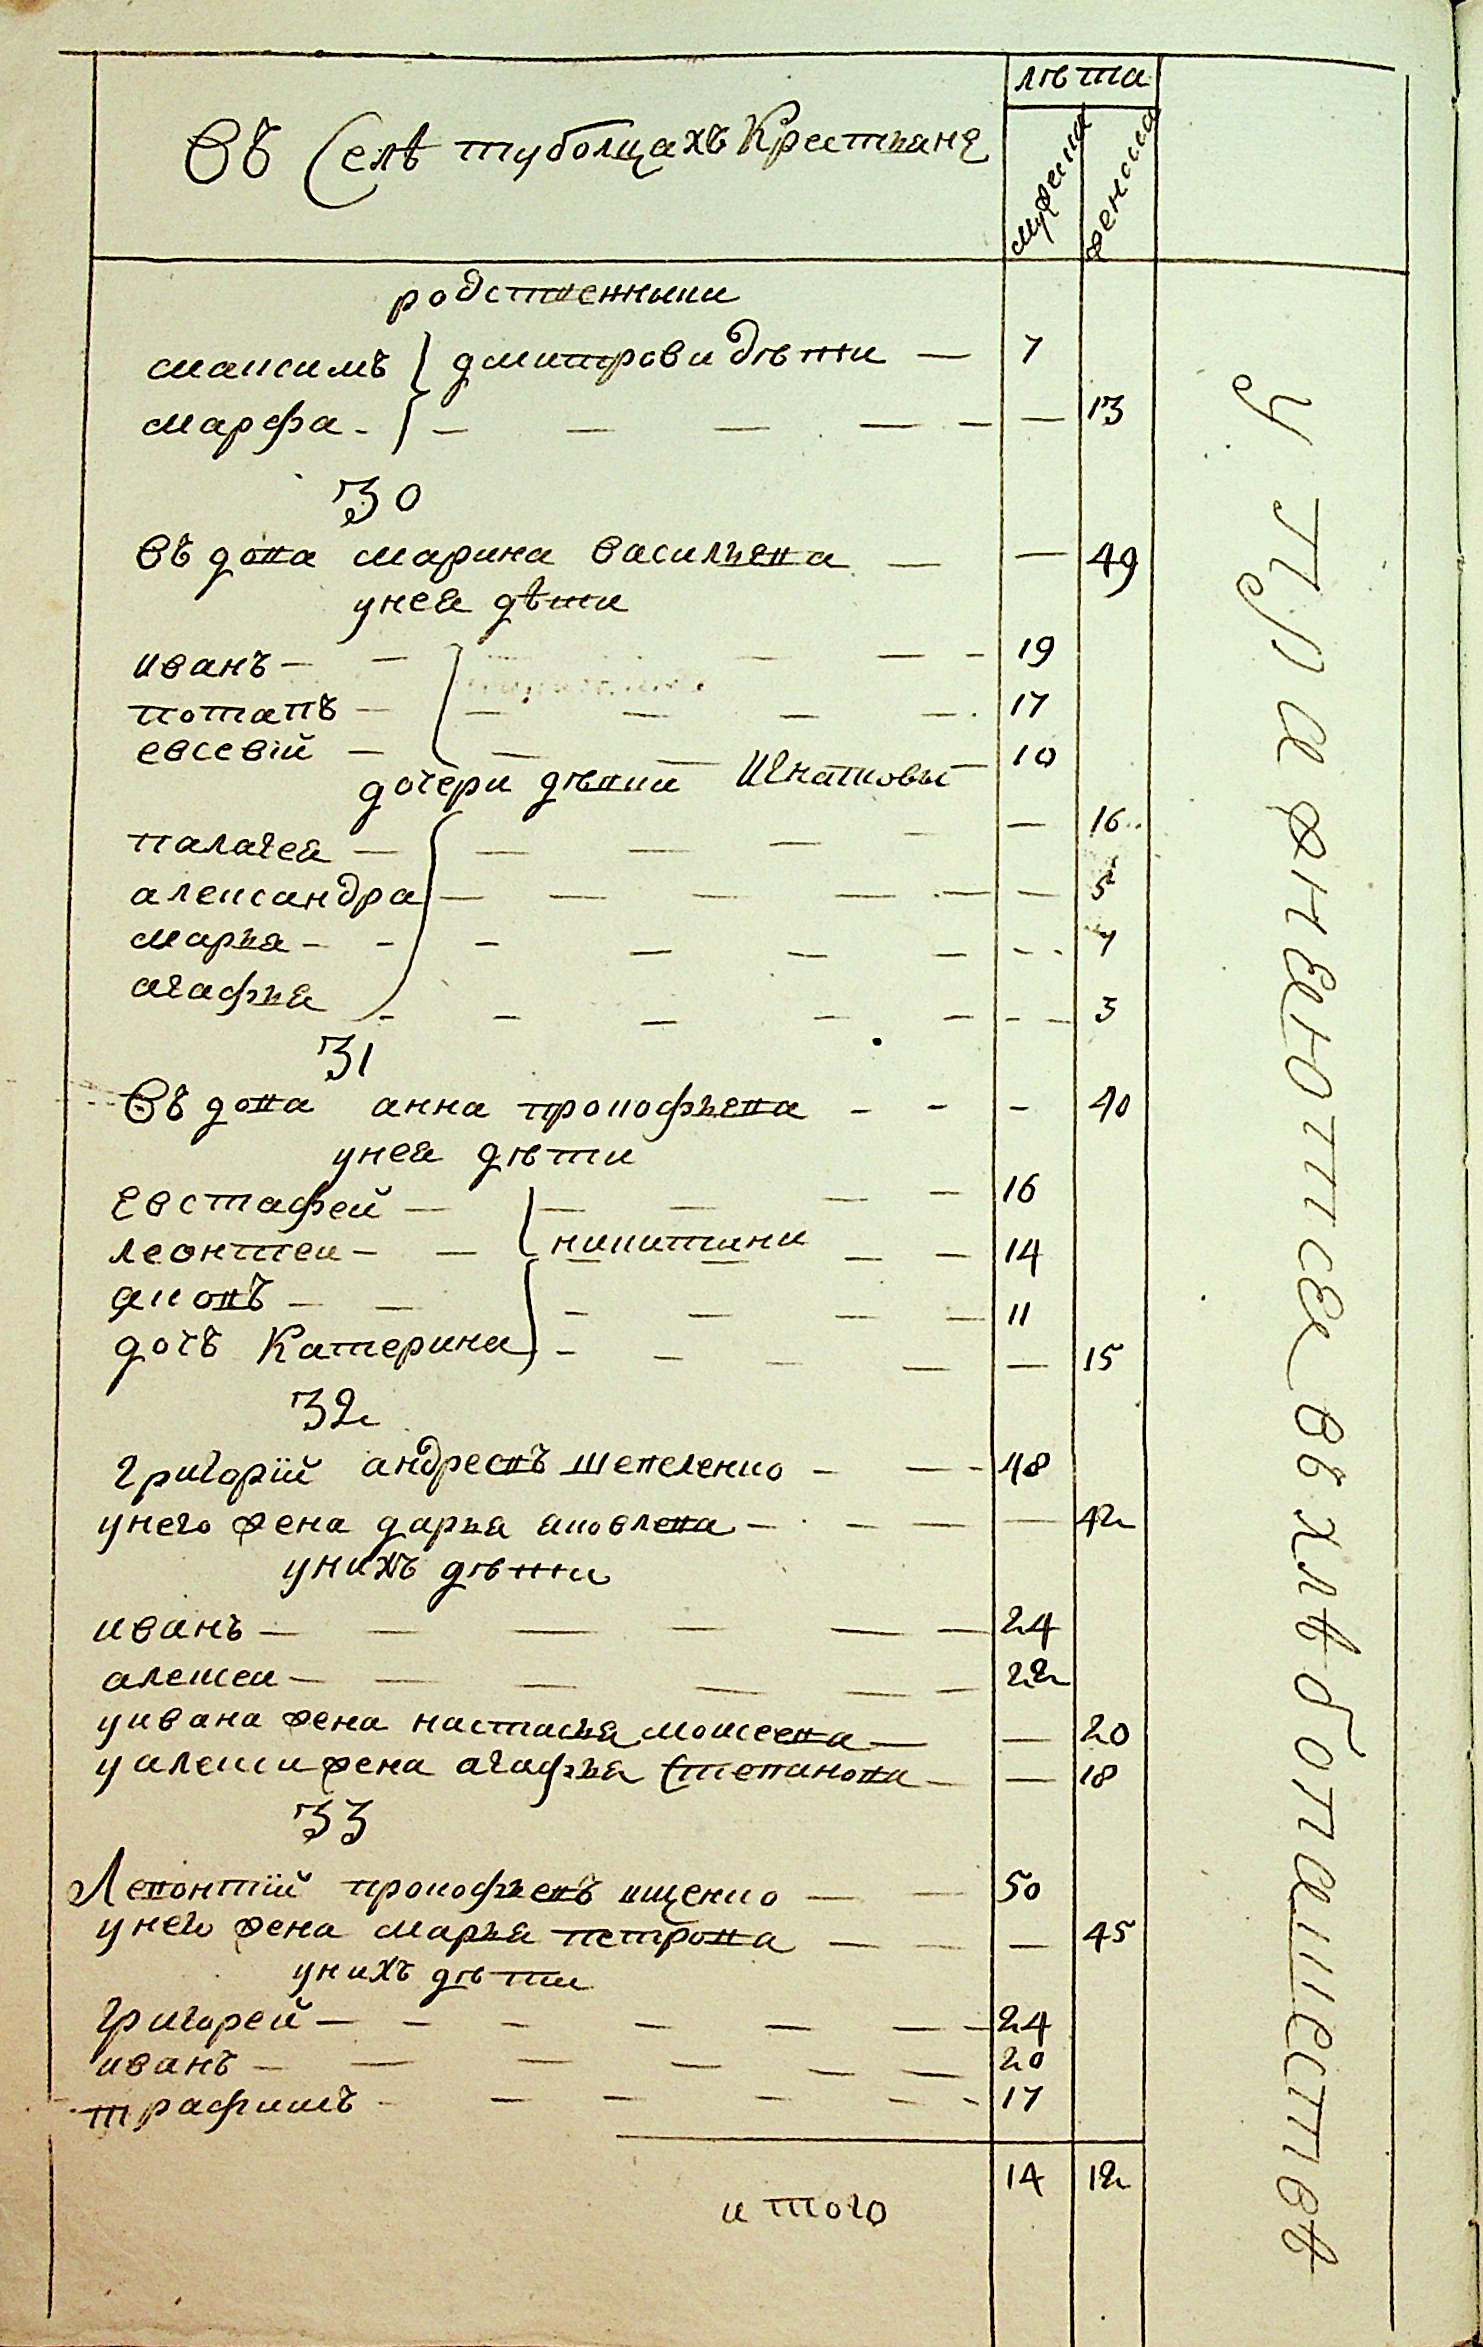 лѣта
Въ Селѣ туболцахъ Крестьяне
мужеска
женска
родственники
максимъ дмитрови дѣти — 7
марфа - — — — — — — 13
30
въдова марина васильева — — 49
унея дѣти
иванъ — — — — - 19
потапъ — — — — — 17
евсевій — — — — 10
дочери дѣвки Игнатовы
палагея — — — — — — 16
александра — — — — — — 5
марья - - - — — — - 7
агафья - - — — — - — 3
31
Въдова анна прокофьева - - - 40
унея дѣти
Евстафей — — — — — 16
леонтеи - — никитини — — 14
яковъ — — - — — — 11
дочъ Катерина - — — — — 15
32
григорїй андреевъ шепеленко - — - 48
унего жена дарья яковлева — - — — — 42
унихъ дѣти
иванъ — — — — — — 24
алексеи — — — — — — 22
уивана жена настасья моисеева — — 20
уалексия жена агафья Степанова — — 18
33
Левонтїй прокофьевъ ищенко — — 50
унего жена марья петрова — — — — 45
унихъ дѣти
григорей — - - — — — - 24
иванъ — — — — — — 20
трафимъ - — — — - - 17
итого 14 12
упражняются въ хлѣбопашествѣ